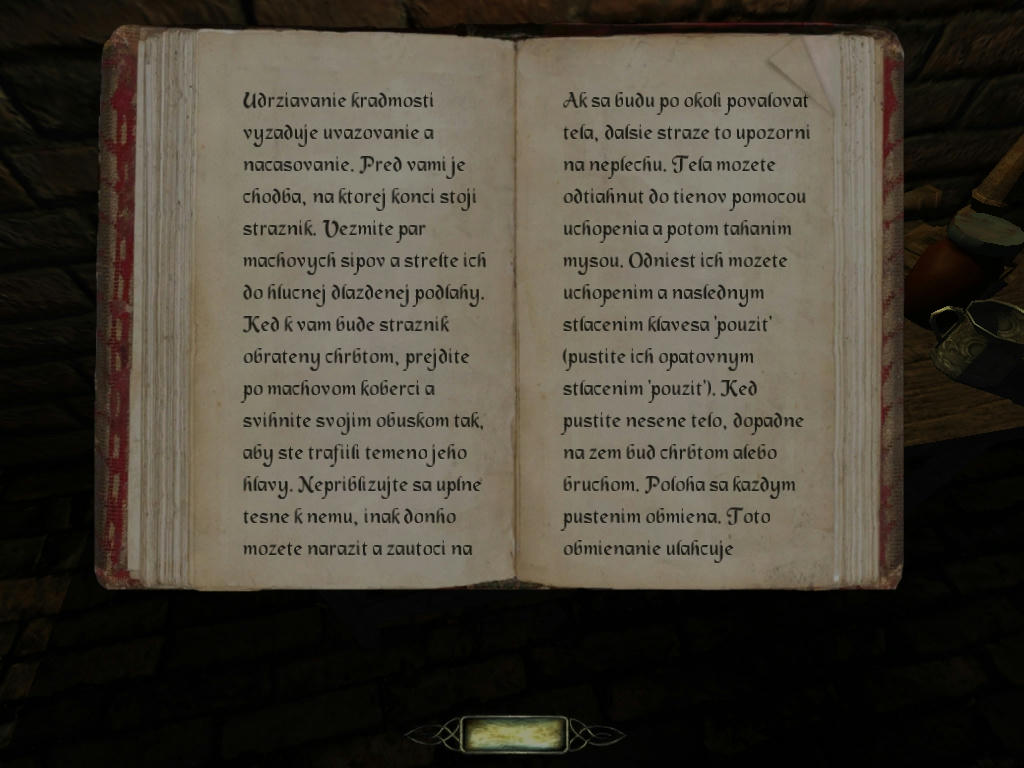 Udrziavanie kradmosti
vyzaduje uvazovanie a
nacasovanie. Pred vami je
chodba, na ktorej konci stoji
straznik. Vezmite par
machovych sipov a strelte ich
do hlucnej dlazdenej podlahy.
Ked k vam bude straznik
obrateny chrbtom, prejdite
po machovom koberci a
svihnite svojim obuskom tak,
aby ste trafiili temeno jeho
hlavy. Nepriblizujte sa uplne
tesne k nemu, inak donho
mozete narazit a zautoci na
Ak sa budu po okoli povalovat
tela, dalsie straze to upozorni
na neplechu. Tela mozete
odtiahnut do tienov pomocou
uchopenia a potom tahanim
mysou. Odniest ich mozete
uchopenim a naslednym
stlacenim klavesa 'pouzit'
(pustite ich opatovnym
stlacenim 'pouzit'). Ked
pustite nesene telo, dopadne
na zem bud chrbtom alebo
bruchom. Poloha sa kazdym
pustenim obmiena. Toto
obmienanie ulahcuje